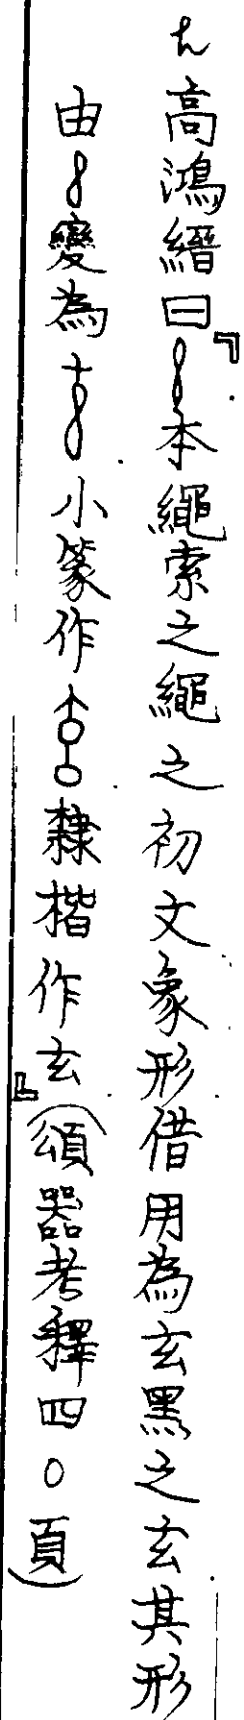 高鴻縉曰『𠄔本繩索之繩之初文象形借用為玄黑之玄其形
由𠄔變為小篆作隸楷作玄』(頌器考釋四〇頁)